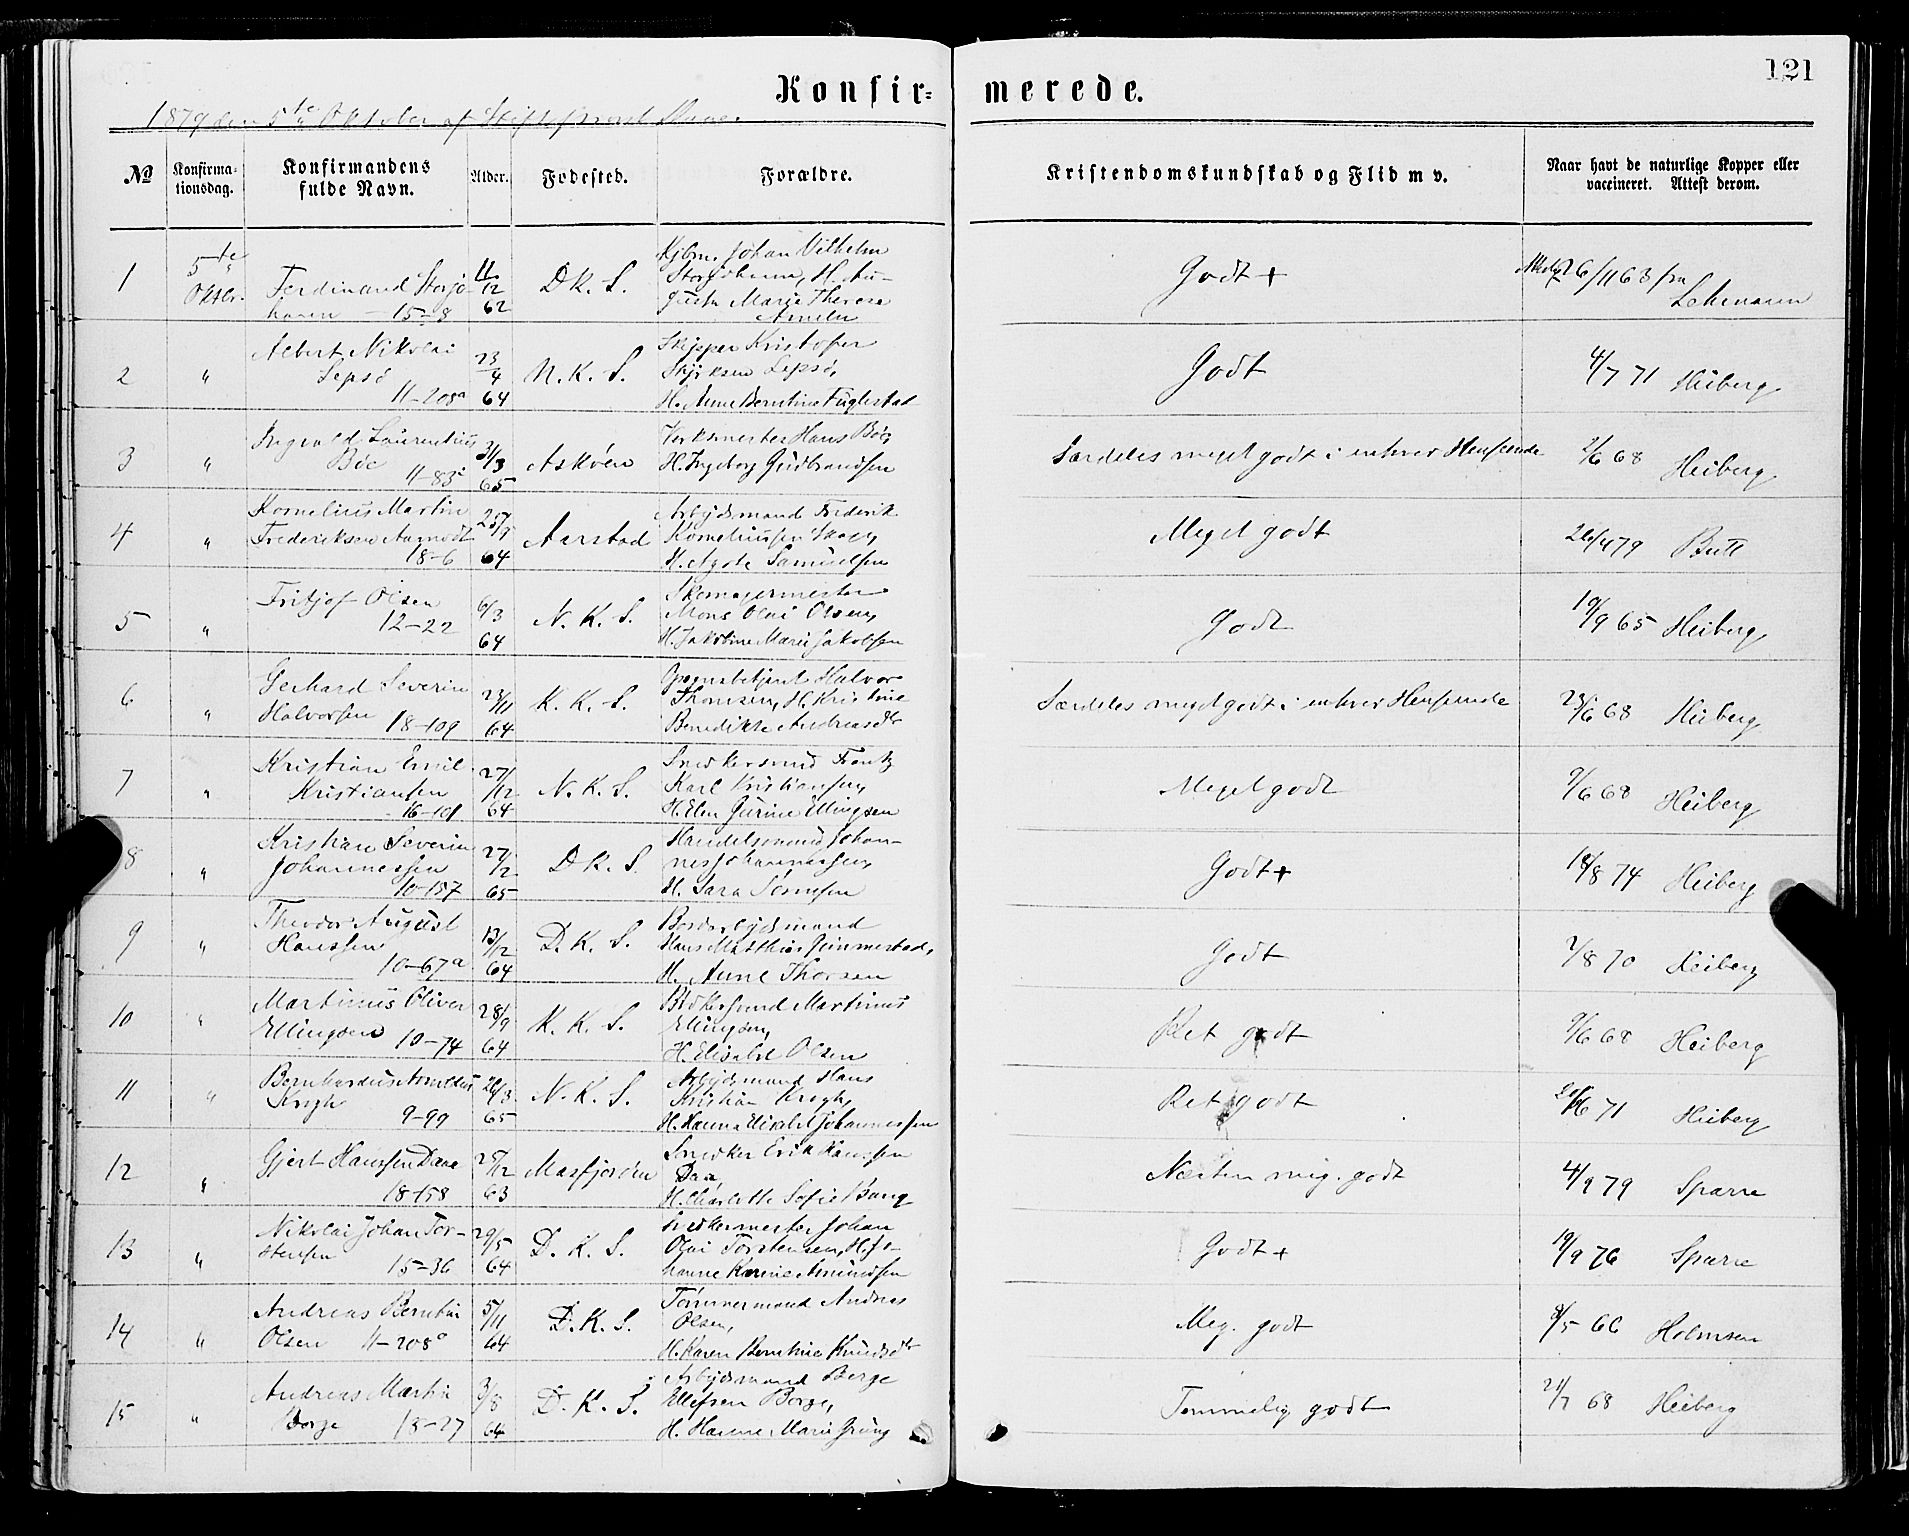 121
Konfir= merede.
1879 den 5te Oktober af Stiftsprovst
№ Konfirma-tionsdag. Konfirmandens fulde Navn. Alder. Fødested. Forældre. Kristendomskundskab og Flid m v. Naar havt de naturlige Kopper eller vaccineret. Attest derom.
1 5te Oktbr. Ferdinand Storjo-hann 15-8 11/12 62 D K. S. Kjbm. Johan Vilhelm Storjohann, H. Au-gusta Marie Therese Godt + 26/11 63 fra Lehmann
2 " Albert Nikolai Lepsø 11-208a 23/4 64 N. K. S. Skipper Kristofer Lepsø, H. Anne Berntine Fuglestad Godt 4/7 71 Heiberg
3 " Ingvald Laurentius Bøe 11-83 31/3 65 Askøen Hans Bøe, H. Ingeborg Gudbrandsen Særdeles meget godt i enhver Henseende 2/6 68 Heiberg
4 " Kornelius Martin Frederiksen 18-6 64 Aarstad Arbejdsmand Frederik Korneliussen H. Agote Samuelsen Meget godt 26/4 79 Bull
5 " Fritjof Olsen 12-22 6/3 64 N. K. S. Skomagermester Mons Olai Olsen, H. Jakobine Marie Jakobsen Godt 19/9 65 Heiberg
6 " Gerhard Severin Halvorsen 18-109 23/11 64 K. K. S. Halvor Thomsen, H. Kristine Benedikte Andreasdtr Særdeles meget godt i enhver Henseende 23/6 68 Heiberg
7 " Kristian Emil Kristiansen 16-101 27/12 64 N. K. S. Snedkersvend Frantz Karl Kristiansen, H. Elen Gurine Ellingsen Meget godt 9/6 68 Heiberg
8 " Kristian Severin Johannessen 10-157 27/2 65 D K. S. Handelsmand Johan-nes Johannessen, H. Sara Godt + 18/8 74 Heiberg
9 " Theodor August Hanssen 10-67a 13/12 64 D. K. S. Hans Matthias Gimmestad, H. Anne Thorsen Godt 7/8 70 Heiberg
10 " Martinus Oliver Ellingsen 10-74 28/9 64 K. K. S. Martinus Ellingsen, H. Elisabet Olsen Ret godt 9/6 68 Heiberg
11 " Bernhardus Arnoldus Krogh 9-99 26/3 65 N. K. S. Arbejdsmand Hans Kristian Krogh, H. Hanna Elisabet Johannessen Ret godt 20/6 71 Heiberg
12 " Gjert Hanssen Daae 18-158 25/12 63 Masfjorden Snedker Erik Hanssen Daa, H. Charlotte Sofie Bang Næsten meg. godt 4/9 79 Sparre
13 " Nikolai Johan Tor-stensen 15-36 29/5 64 D. K. S. Snedkermester Johan Olai Torstensen, H. Jo-hanne Karine Amundsen Godt + 19/9 76 Sparre
14 " Andreas Berntin Olsen 11-208a 5/11 64 D. K. S. Tømmermand Andreas Olsen, H. Karen Berntine Knudsdtr Meg. godt 8/5 66 Holmsen
15 " Andreas Martin Borge 18-27 3/8 64 D. K. S. Arbejdsmand Børge Ellefsen Borge, H. Hanne Marie Grung Temmelig godt 21/7 68 Heiberg